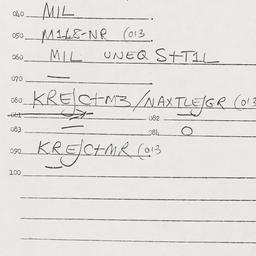 040 MIL
050 M1L8-NR (013
060 MIL UNEQ S+T1L
070
080 KREJC+M3/NAXTLEJGR (013
081 082
083 084 O
090 KREJC+MR (013
100